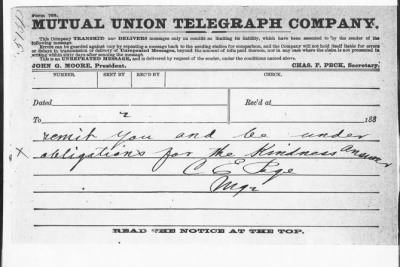 Form 768.
MUTUAL UNION TELEGRAPH COMPANY.
This Company TRANSMITS and DELIVERS messages only on conditions limiting its liability, which have been assented to by the sender of the following message.
Errors can be guarded against only by repeating a message back to the sending station for comparison, and the Company will not hold itself liable for errors or delays in transmission or delivery of Unrepeated Messages, beyond the amount of tolls paid thereon, nor in any case where the claim is not presented in writing within sixty days after sending the message.
This is an UNREPEATED MESSAGE, and is delivered by request of the sender, under the conditions named above.
JOHN G. MOORE, President. CHAS. F. PECK, Secretary.
NUMBER. SENT BY REC'D BY CHECK.
Dated Rec'd at
To 2 188
remit you and be under
x obligations for the kindness answer
C E Page
Mgr
READ THE NOTICE AT THE TOP.